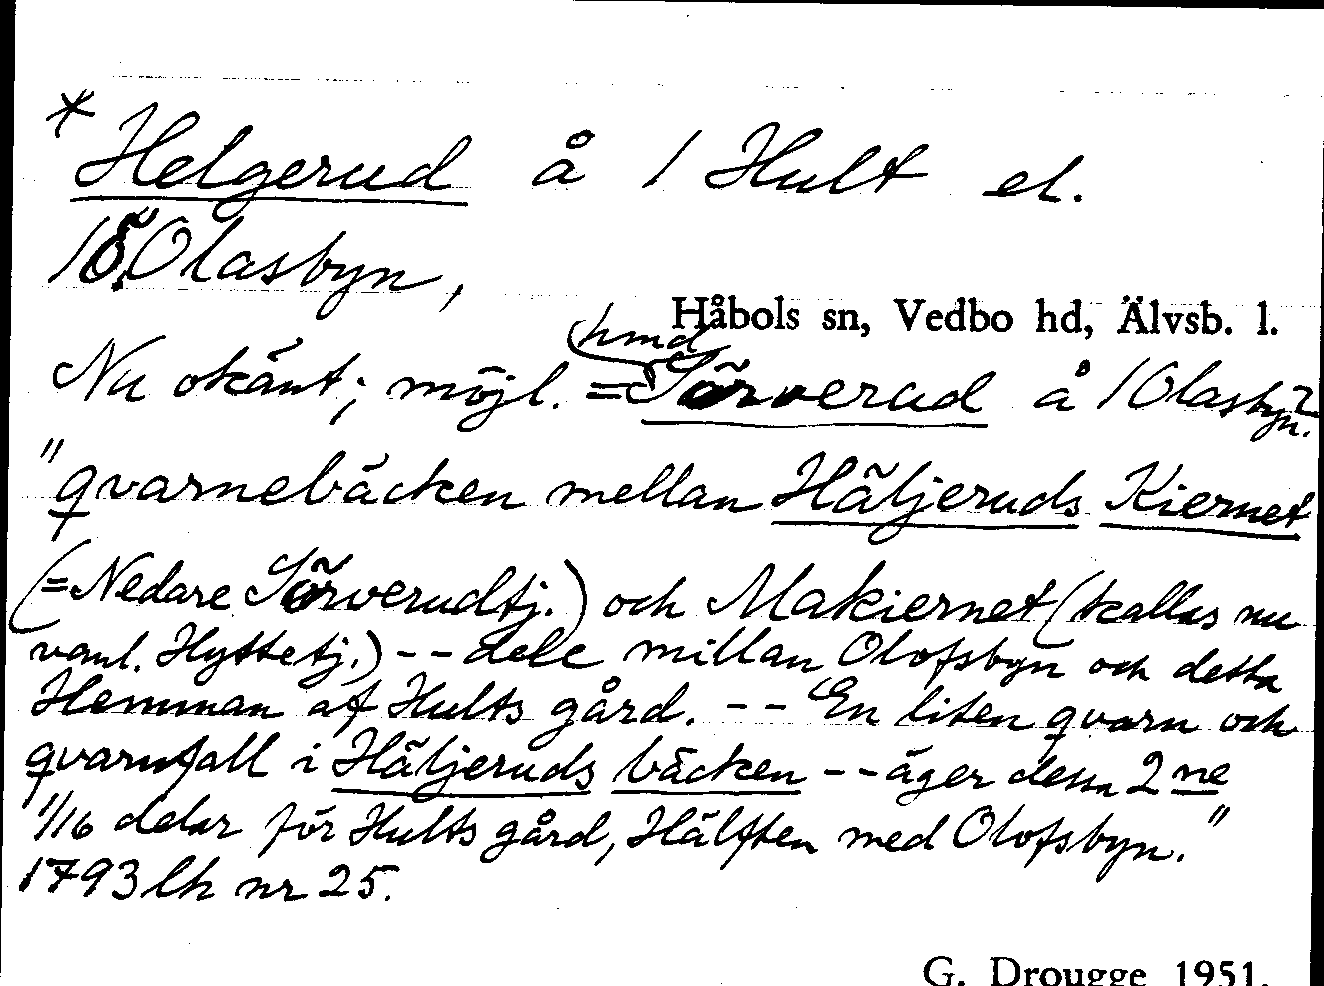 * Helgerud å 1 Hult el.
1 Ö Olasbyn,
Håbols sn, Vedbo hd, Älvsb. l.
(hmd
Nu okänt; möjl. = Sörverud å 1 Olasbyn?
"qvarnebäcken mellan Häljeruds Kiernet
(=Nedare Sörverudtj.) och Makiernet (kallas nu
vanl. Hyttetj.) -- dele millan Olofsbyn och detta
Hemman af Hults gård. -- En liten qvarn och
qvarnfall i Häljeruds bäcken -- äger dessa 2ne
1/16 delar för Hults gård, Hälften med Olofsbyn."
1793 lh nr 25.
G. Drougge 1951.